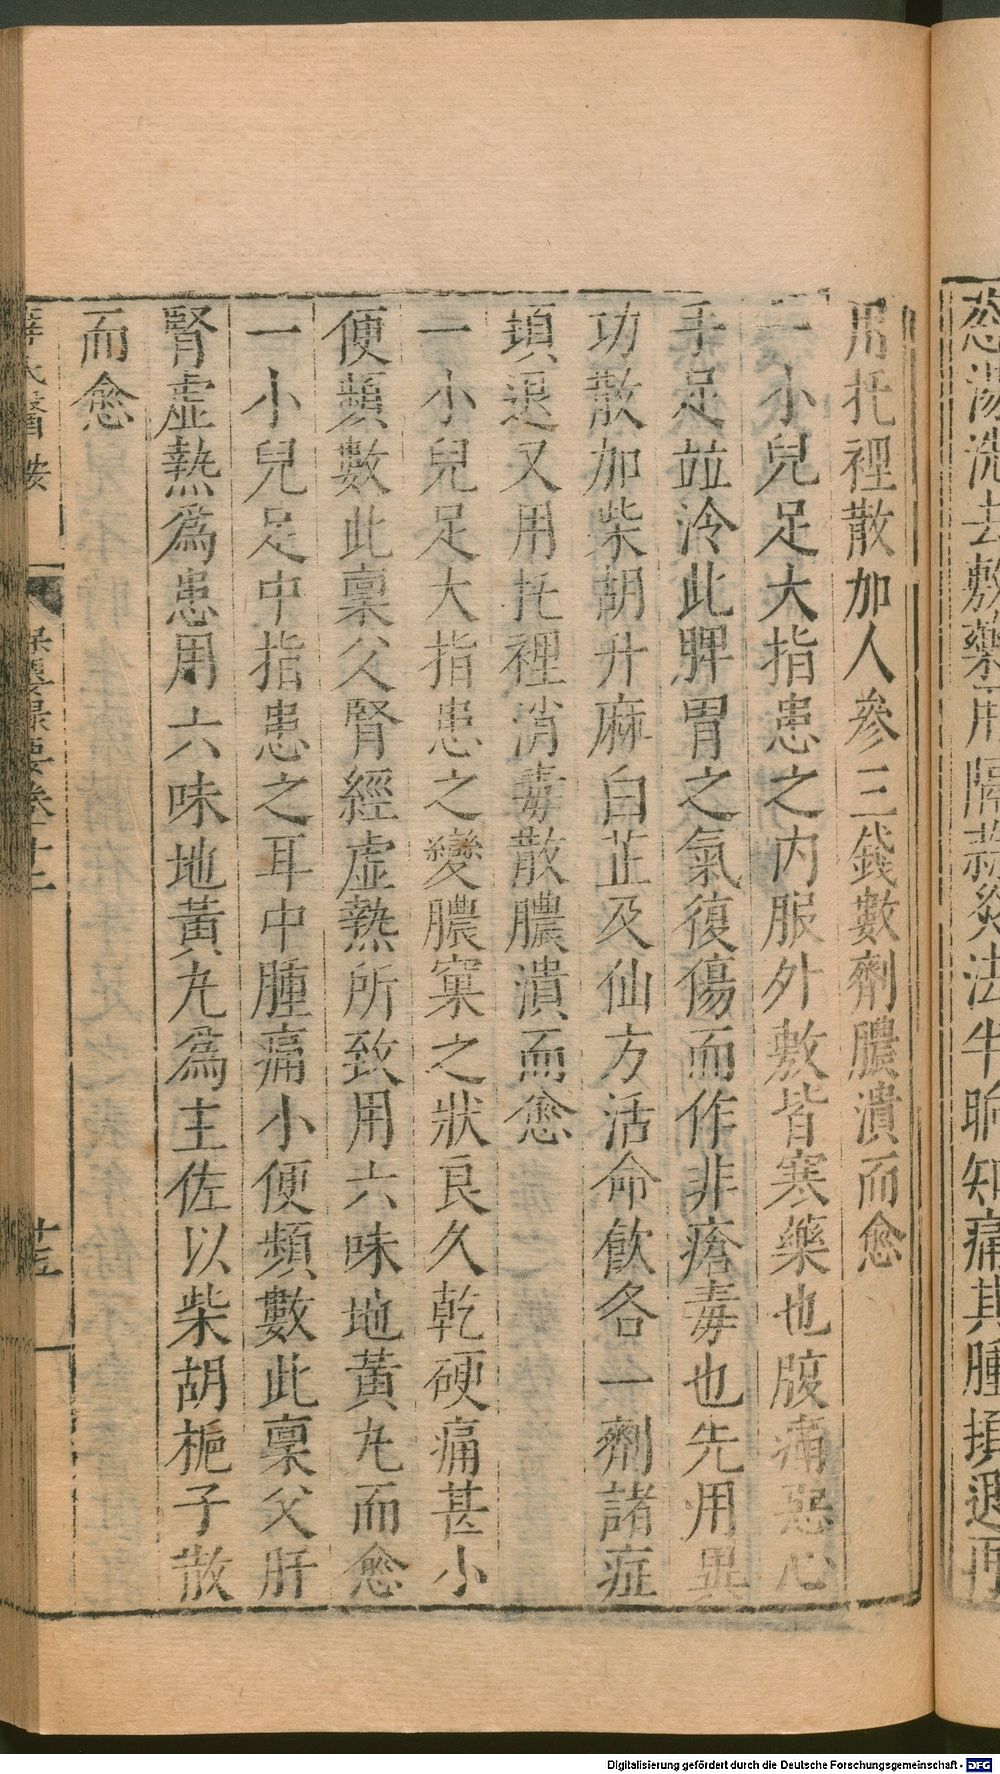 葱湯洗去敷藥用隔蒜灸法半晌知痛其腫頓退再
用托裡散加人參三錢數劑膿潰而愈
一小兒足大指患之內服外敷皆寒藥也腹痛惡心
手足並冷此脾胃之氣復傷而作非瘡毒也先用異
功散加柴胡升麻白芷及仙方活命飲各一劑諸症
頓退又用托裡消毒散膿潰而愈
一小兒足大指患之變膿窠之狀良久乾硬痛甚小
便頻數此稟父腎經虛熱所致用六味地黃丸而愈
一小兒足中指患之耳中腫痛小便頻數此稟父肝
腎虛熱爲患用六味地黃丸爲主佐以柴胡梔子散
而愈
薛氏醫按 保嬰撮要卷十二 廿五
Digitalisierung gefördert durch die Deutsche Forschungsgemeinschaft - DFG